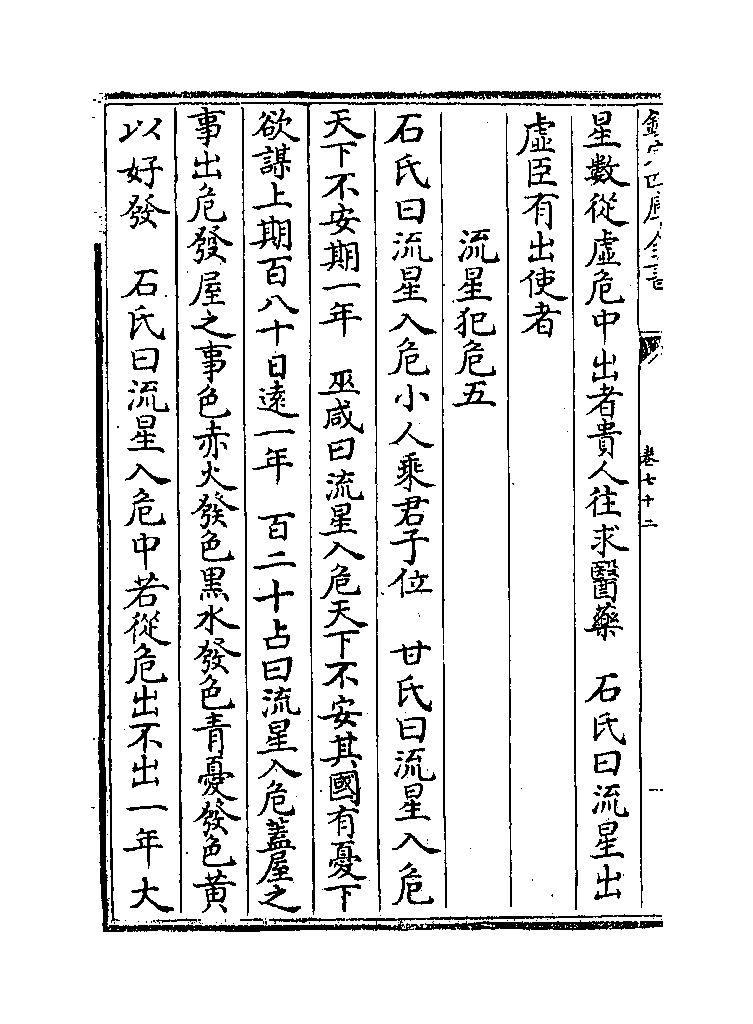 欽定四庫全書
卷七十二
星數從虛危中出者貴人往求醫藥　石氏曰流星出
虛臣有出使者
流星犯危五
石氏曰流星入危小人乘君子位　甘氏曰流星入危
天下不安期一年　巫咸曰流星入危天下不安其國有憂下
欲謀上期百八十日遠一年　百二十占曰流星入危蓋屋之
事出危發屋之事色赤火發色黒水發色青憂發色黄
以好發　石氏曰流星入危中若從危出不出一年大